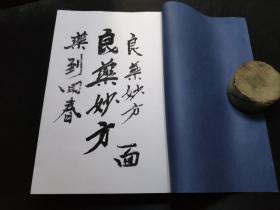 良藥妙方
面
良藥妙方
藥到回春